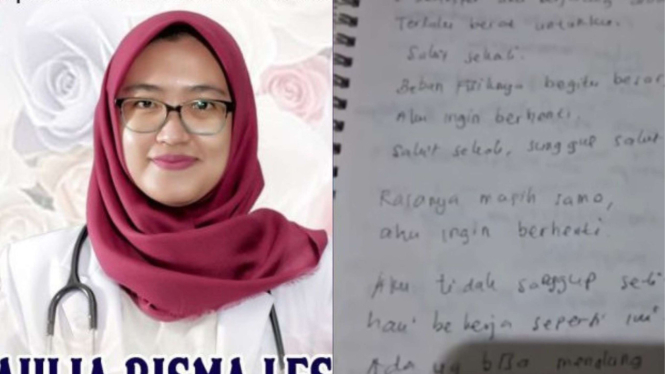 AULIA RISMA LES
Terlalu berat untukku.
Sakit sekali.
Beban fisiknya begitu besar
Aku ingin berhenti.
Sakit sekali, sungguh sakit
Rasanya masih sama,
aku ingin berhenti.
Aku tidak sanggup seti
hari bekerja seperti ini
Ada yg bisa menolong